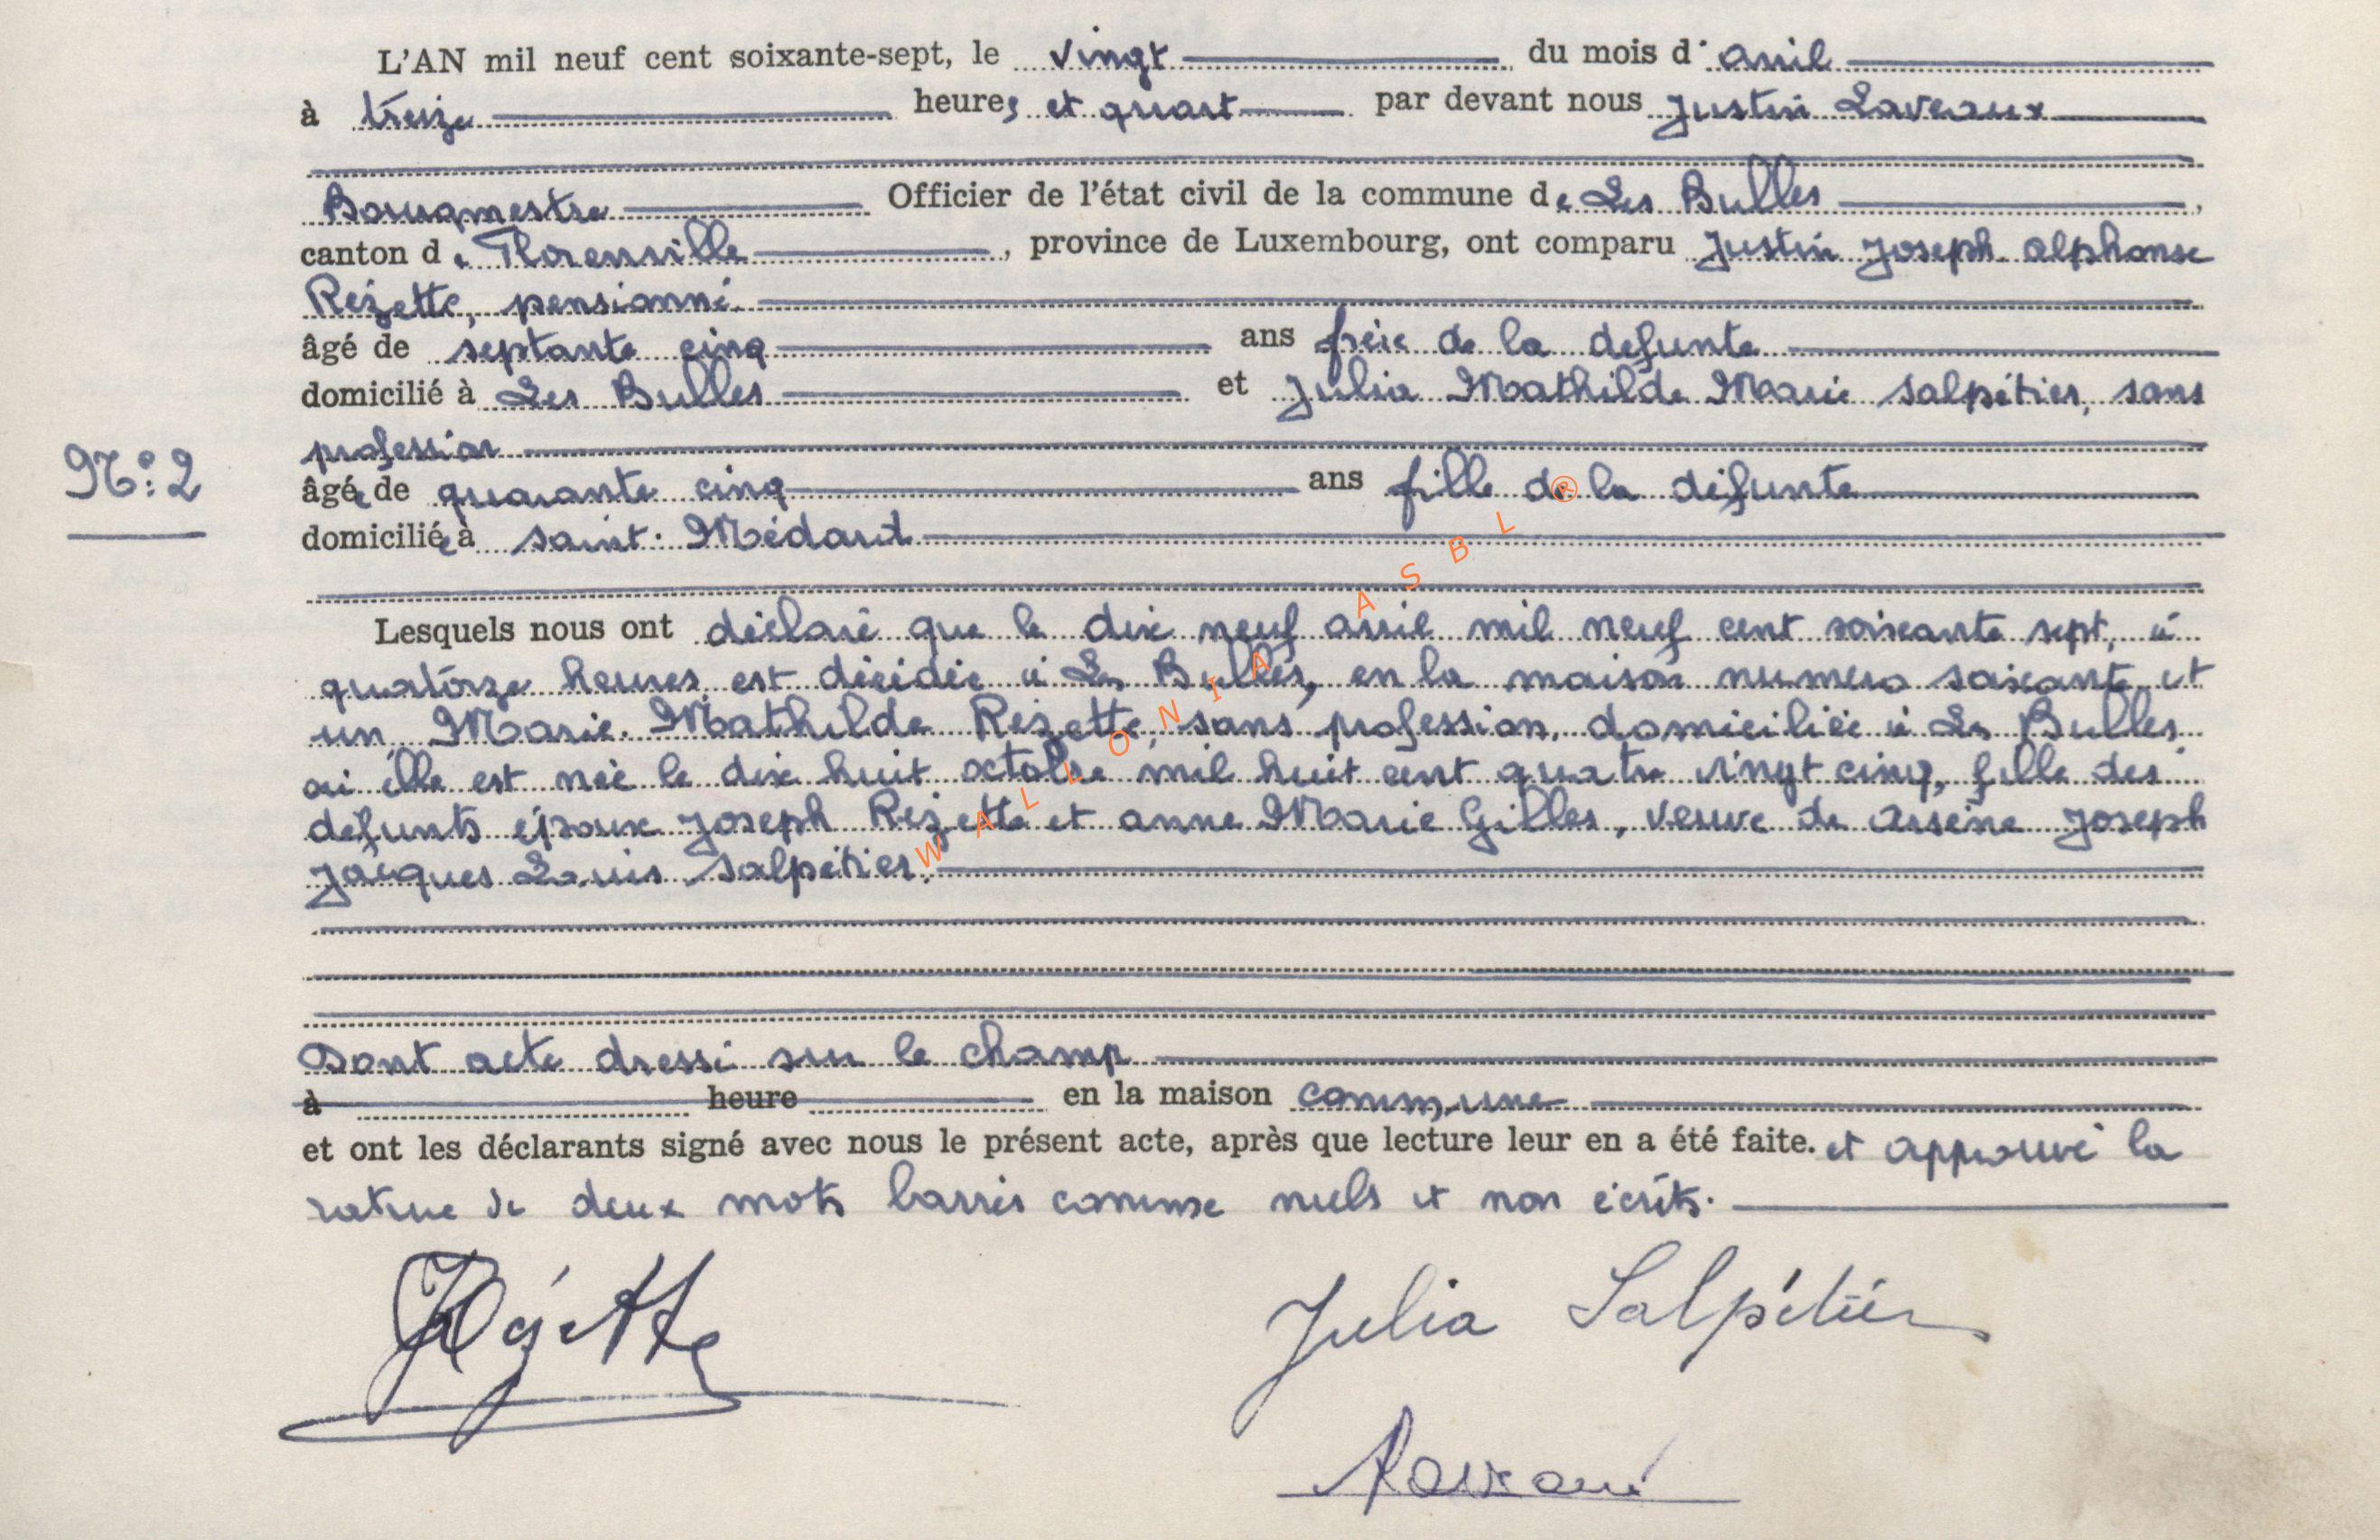 L'AN mil neuf cent soixante-sept, le vingt du mois d'avril
à treize heures et quart par devant nous Justin Laveaux
Bourgmestre Officier de l'état civil de la commune de Les Bulles,
canton de Florenville, province de Luxembourg, ont comparu Justin Joseph Alphonse
Rézette, pensionné
âgé de septante cinq ans frère de la défunte
domicilié à Les Bulles et Julia Mathilde Marie Salpétier, sans
profession
N°: 2
âgée de quarante cinq ans fille de la défunte
domiciliée à Saint-Médard
Lesquels nous ont déclaré que le dix neuf avril mil neuf cent soixante sept, à
quatorze heures est décédée à Les Bulles, en la maison numéro soixante et
un Marie-Mathilde Rézette, sans profession, domiciliée à Les Bulles
où elle est née le dix huit octobre mil huit cent quatre vingt cinq, fille des
défunts époux Joseph Rézette et Anne Marie Gilles, veuve de Arsène Joseph
Jacques Louis Salpétier.
Dont acte dressé sur le champ
à heure en la maison commune
et ont les déclarants signé avec nous le présent acte, après que lecture leur en a été faite. et approuvé la
rature de deux mots barrés comme nuls et non écrits.
Julia Salpétier
WALLONIA ASBL ®